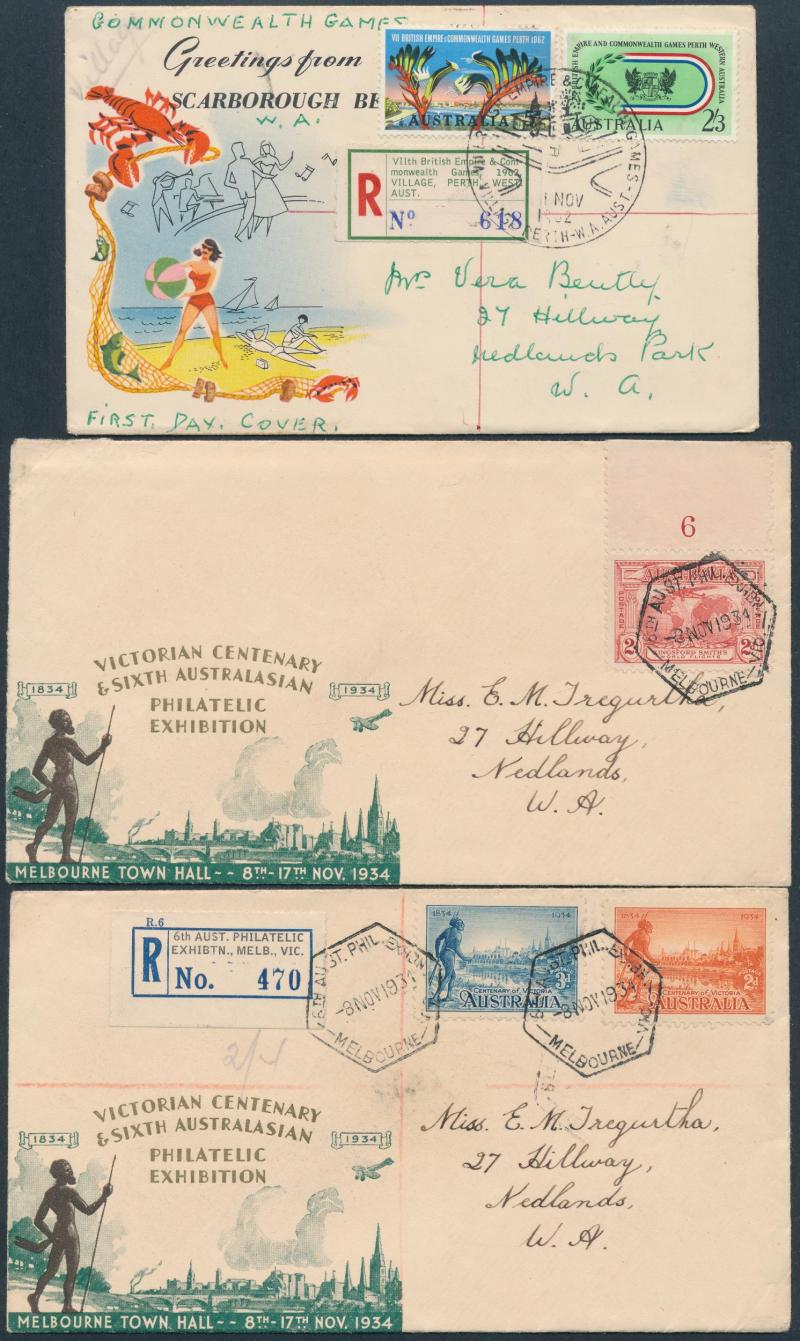 COMMONWEALTH GAMES
Village
Greetings from
SCARBOROUGH BE
W. A.
VII BRITISH EMPIRE & COMMONWEALTH GAMES PERTH 1962
AUSTRALIA
BRITISH EMPIRE AND COMMONWEALTH GAMES PERTH WESTERN AUSTRALIA
AUSTRALIA 2/3
EMPIRE &
GAMES
1 NOV
1962
PERTH-W.A. AUST.
R
VIIth British Empire & Com-
monwealth Games 1962
VILLAGE, PERTH, WEST.
AUST.
No 618
Mrs Vera Bently
27 Hillway
Nedlands Park
W. A.
FIRST. DAY. COVER.
6
POSTAGE
2d 2d
KINGSFORD SMITH'S
WORLD FLIGHTS
6TH AUST. PHIL. EXHON
-8NOV1934
MELBOURNE VIC
VICTORIAN CENTENARY
& SIXTH AUSTRALASIAN
1834 1934
PHILATELIC
EXHIBITION
Miss. E. M. Tregurtha,
27 Hillway,
Nedlands,
W. A.
MELBOURNE TOWN HALL -- 8TH-17TH NOV. 1934
R.6
R
6th AUST. PHILATELIC
EXHIBTN., MELB., VIC.
No. 470
6TH AUST. PHIL. EXHON
-8NOV1934
MELBOURNE VIC
1834 1934
3d
CENTENARY OF VICTORIA
AUSTRALIA
ST. PHIL. EXHON
-8NOV1934
MELBOURNE VIC
1834 1934
POSTAGE
2d
CENTENARY OF VICTORIA
AUSTRALIA
2/4
VICTORIAN CENTENARY
& SIXTH AUSTRALASIAN
1834 1934
PHILATELIC
EXHIBITION
Miss. E. M. Tregurtha,
27 Hillway,
Nedlands,
W. A.
MELBOURNE TOWN HALL -- 8TH-17TH NOV. 1934